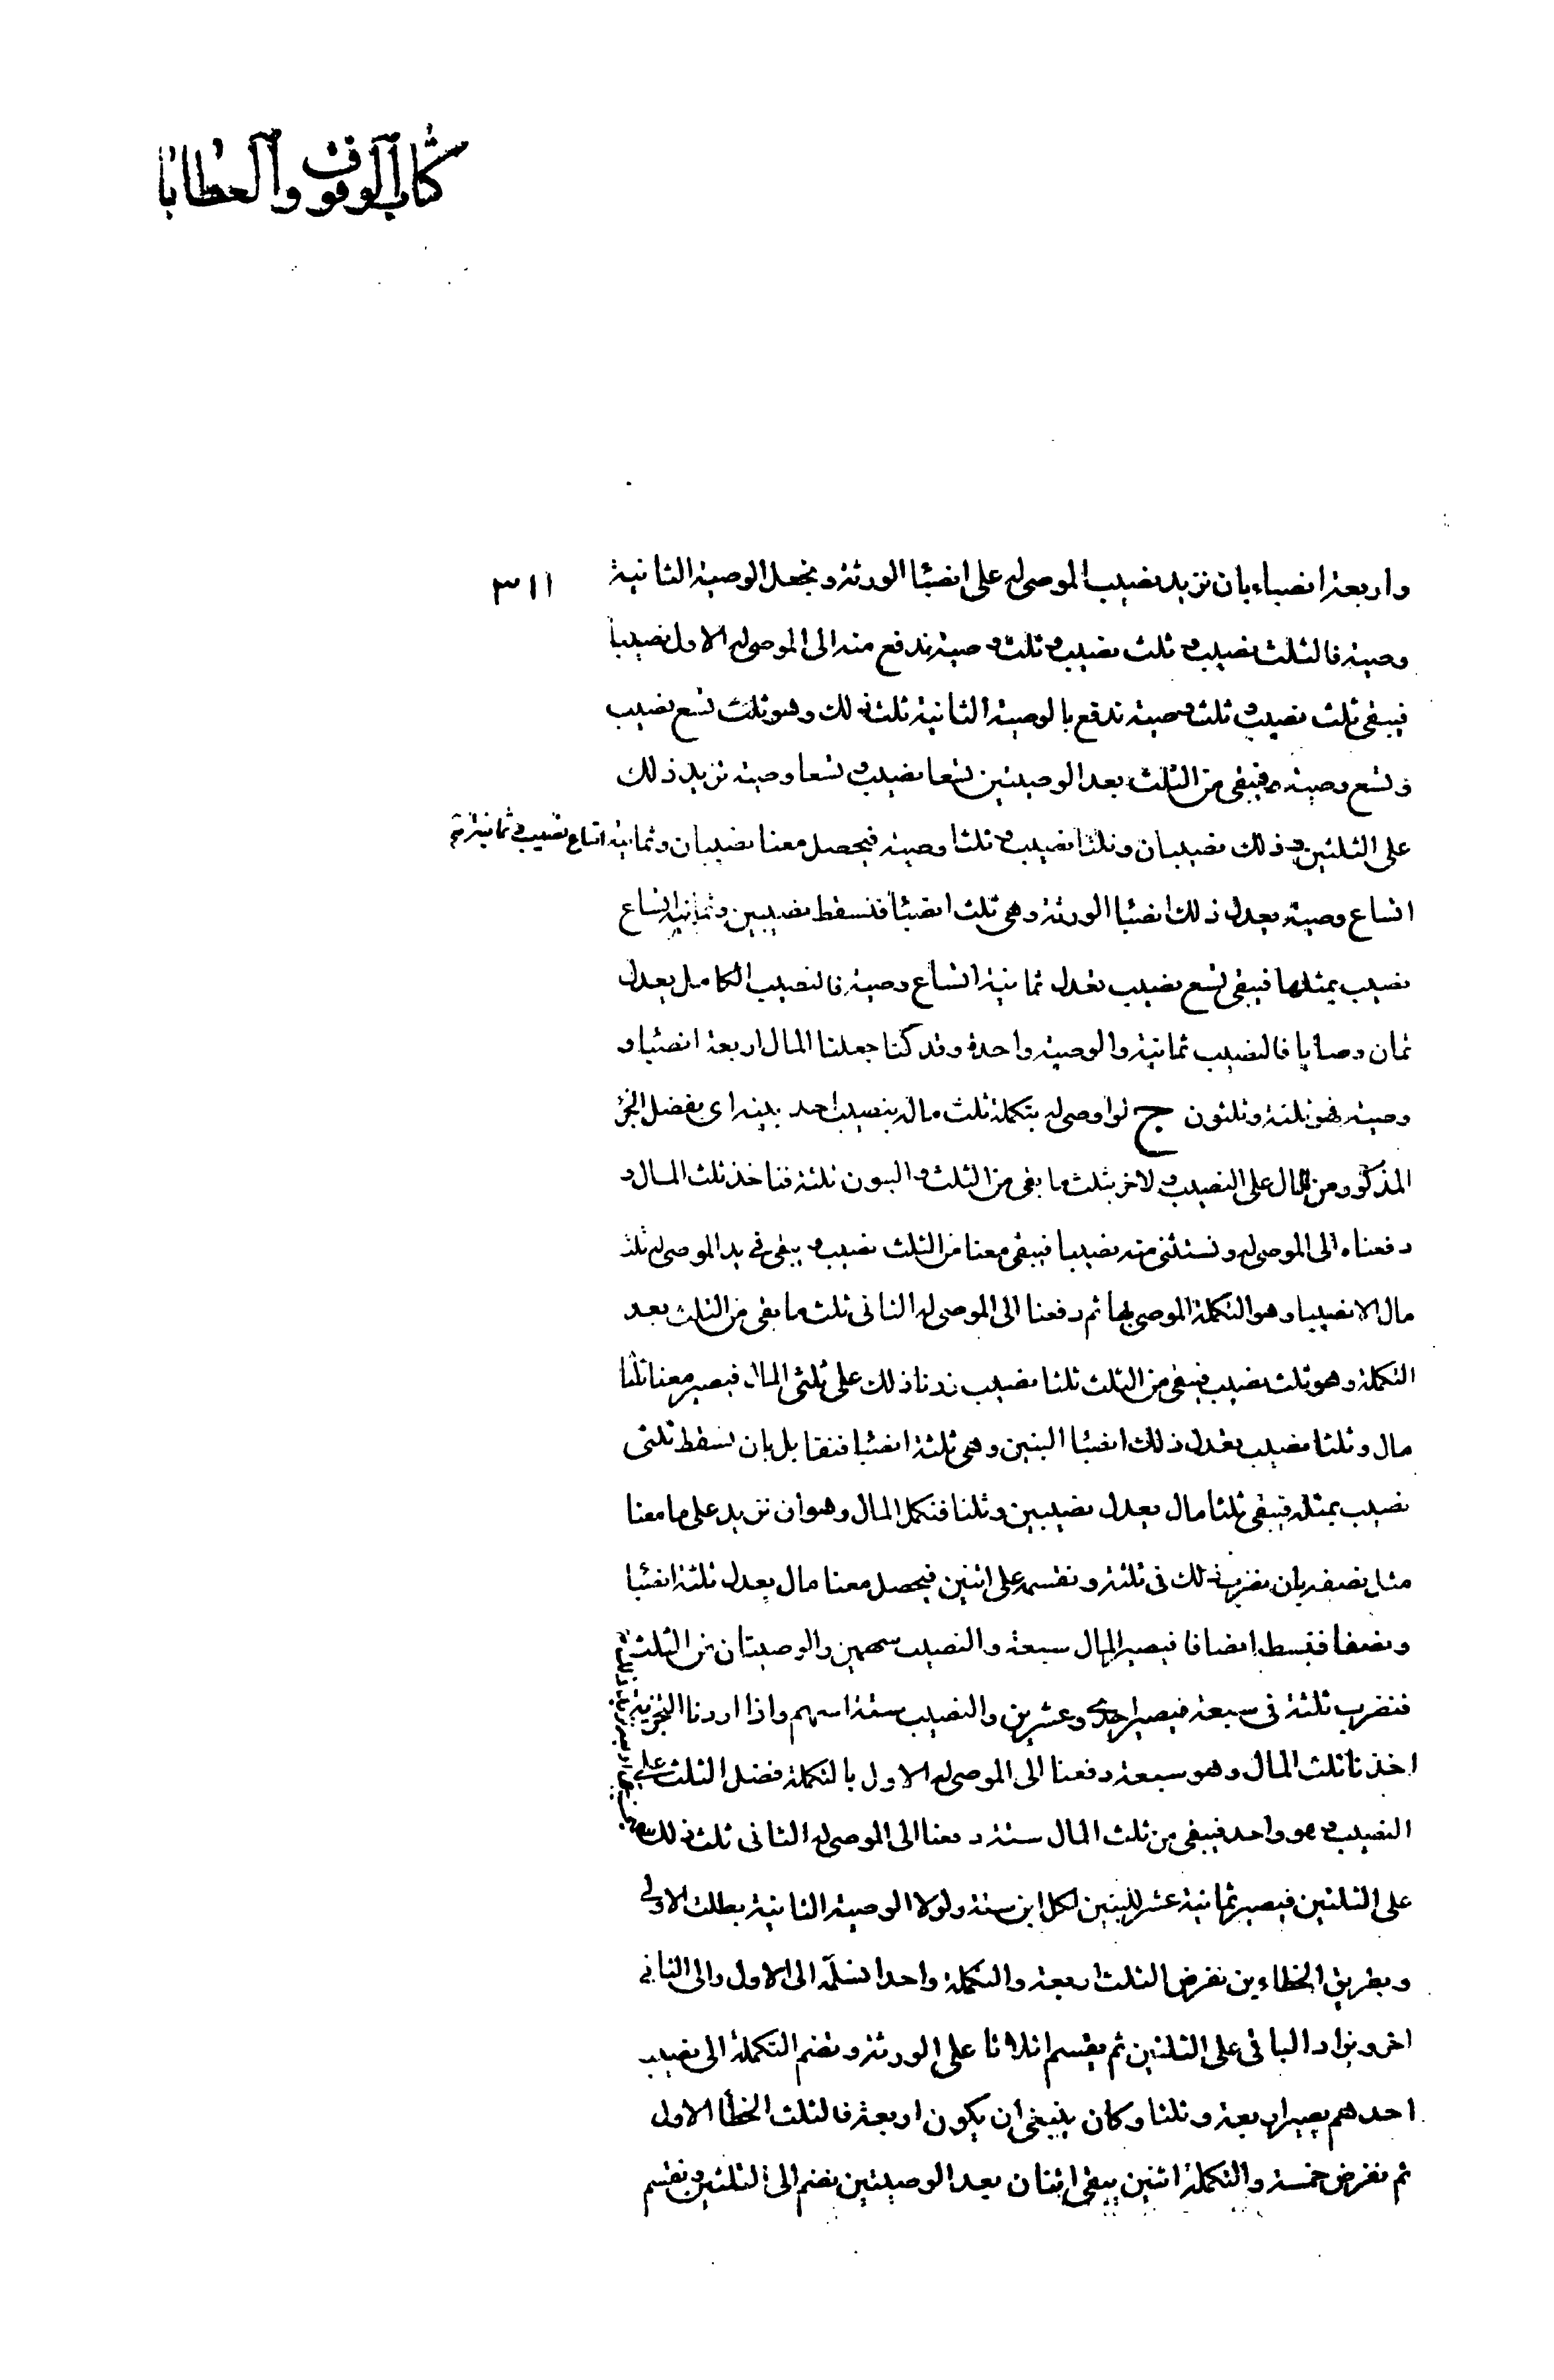 كتاب الوقوف والعطايا
٣١١
واربعة انصباء بان نزيد نصيب الموصى له على انصبا الورثة ونجعل الوصية الثانية
وصية فالثلث نصيب و ثلث نصيب و ثلث وصية ندفع منه الى الموصى له الاول نصيبا
فيبقى ثلث نصيب و ثلث وصية ندفع بالوصية الثانية ثلث ذلك وهو ثلث تسع نصيب
وتسع وصية فيبقى من الثلث بعد الوصيتين تسعا نصيب و تسعا وصية نزيد ذلك
على الثلثين و ذلك نصيبان وثلثا نصيب و ثلثا وصية فيحصل معنا نصيبان وثمانية اتساع نصيب و ثمانية
اتساع وصية يعدل ذلك انصبا الورثة وهى ثلث انصبا فنسقط نصيبين وثمانية اتساع
نصيب بمثلها فيبقى تسع نصيب تعدل ثمانية اتساع وصية فالنصيب الكامل يعدل
ثمان وصايا فالنصيب ثمانية والوصية واحدة وقد كنا جعلنا المال اربعة انصبا و
وصية فهو ثلثة وثلثون ج لو اوصى له بتكملة ثلث ماله بنصيب احد بنيه اى بفضل الجزء
المذكور من المال على النصيب و لاخر بثلث ما بقى من الثلث و البنون ثلثة فناخذ ثلث المال و
دفعناه الى الموصى له ونستثنى منه نصيبا فيبقى معنا من الثلث نصيب و يبقى فى يد الموصى له ثلث
مال الا نصيبا وهو التكملة الموصى بها ثم دفعنا الى الموصى له الثانى ثلث ما بقى من الثلث بعد
التكملة وهو ثلث نصيب فيبقى من الثلث ثلثا نصيب زدنا ذلك على ثلثى المال فيصير معنا ثلثا
مال وثلثا نصيب يعدل ذلك انصبا البنين وهى ثلثة انصبا فنقابل بان نسقط ثلثى
نصيب بمثله فيبقى ثلثا مال يعدل نصيبين وثلثا فنكمل المال وهو ان نزيد على ما معنا
مثل نصفه بان نضرب ذلك فى ثلثة ونقسمه على اثنين فيحصل معنا مال يعدل ثلثة انصبا
ونصفا فنبسط انصافا فيصير المال سبعة والنصيب سهمين والوصيتان من الثلث
فنضرب ثلثة فى سبعة فيصير احدى وعشرين والنصيب ستة اسهم واذا اردنا التجزية
اخذنا ثلث المال وهو سبعة دفعنا الى الموصى له الاول بالتكملة فضل الثلث على
النصيب و هو واحد فيبقى من ثلث المال ستة دفعنا الى الموصى له الثانى ثلث ذلك
على الثلثين فيصير ثمانية عشر للبنين لكل ابن ستة ولولا الوصية الثانية بطلت الاولى
وبطريق الخطاءين نفرض الثلث اربعة والتكملة واحدا نسلمه الى الاول والى الثانى
اخر ويزاد الباقى على الثلثين ثم يقسم اثلاثا على الورثة ونضم التكملة الى نصيب
احدهم يصير اربعة وثلثا وكان ينبغى ان يكون اربعة فالثلث الخطأ الاول
ثم نفرض خمسة والتكملة اثنين يبقى اثنان بعد الوصيتين نضم الى الثلثين ونقسم